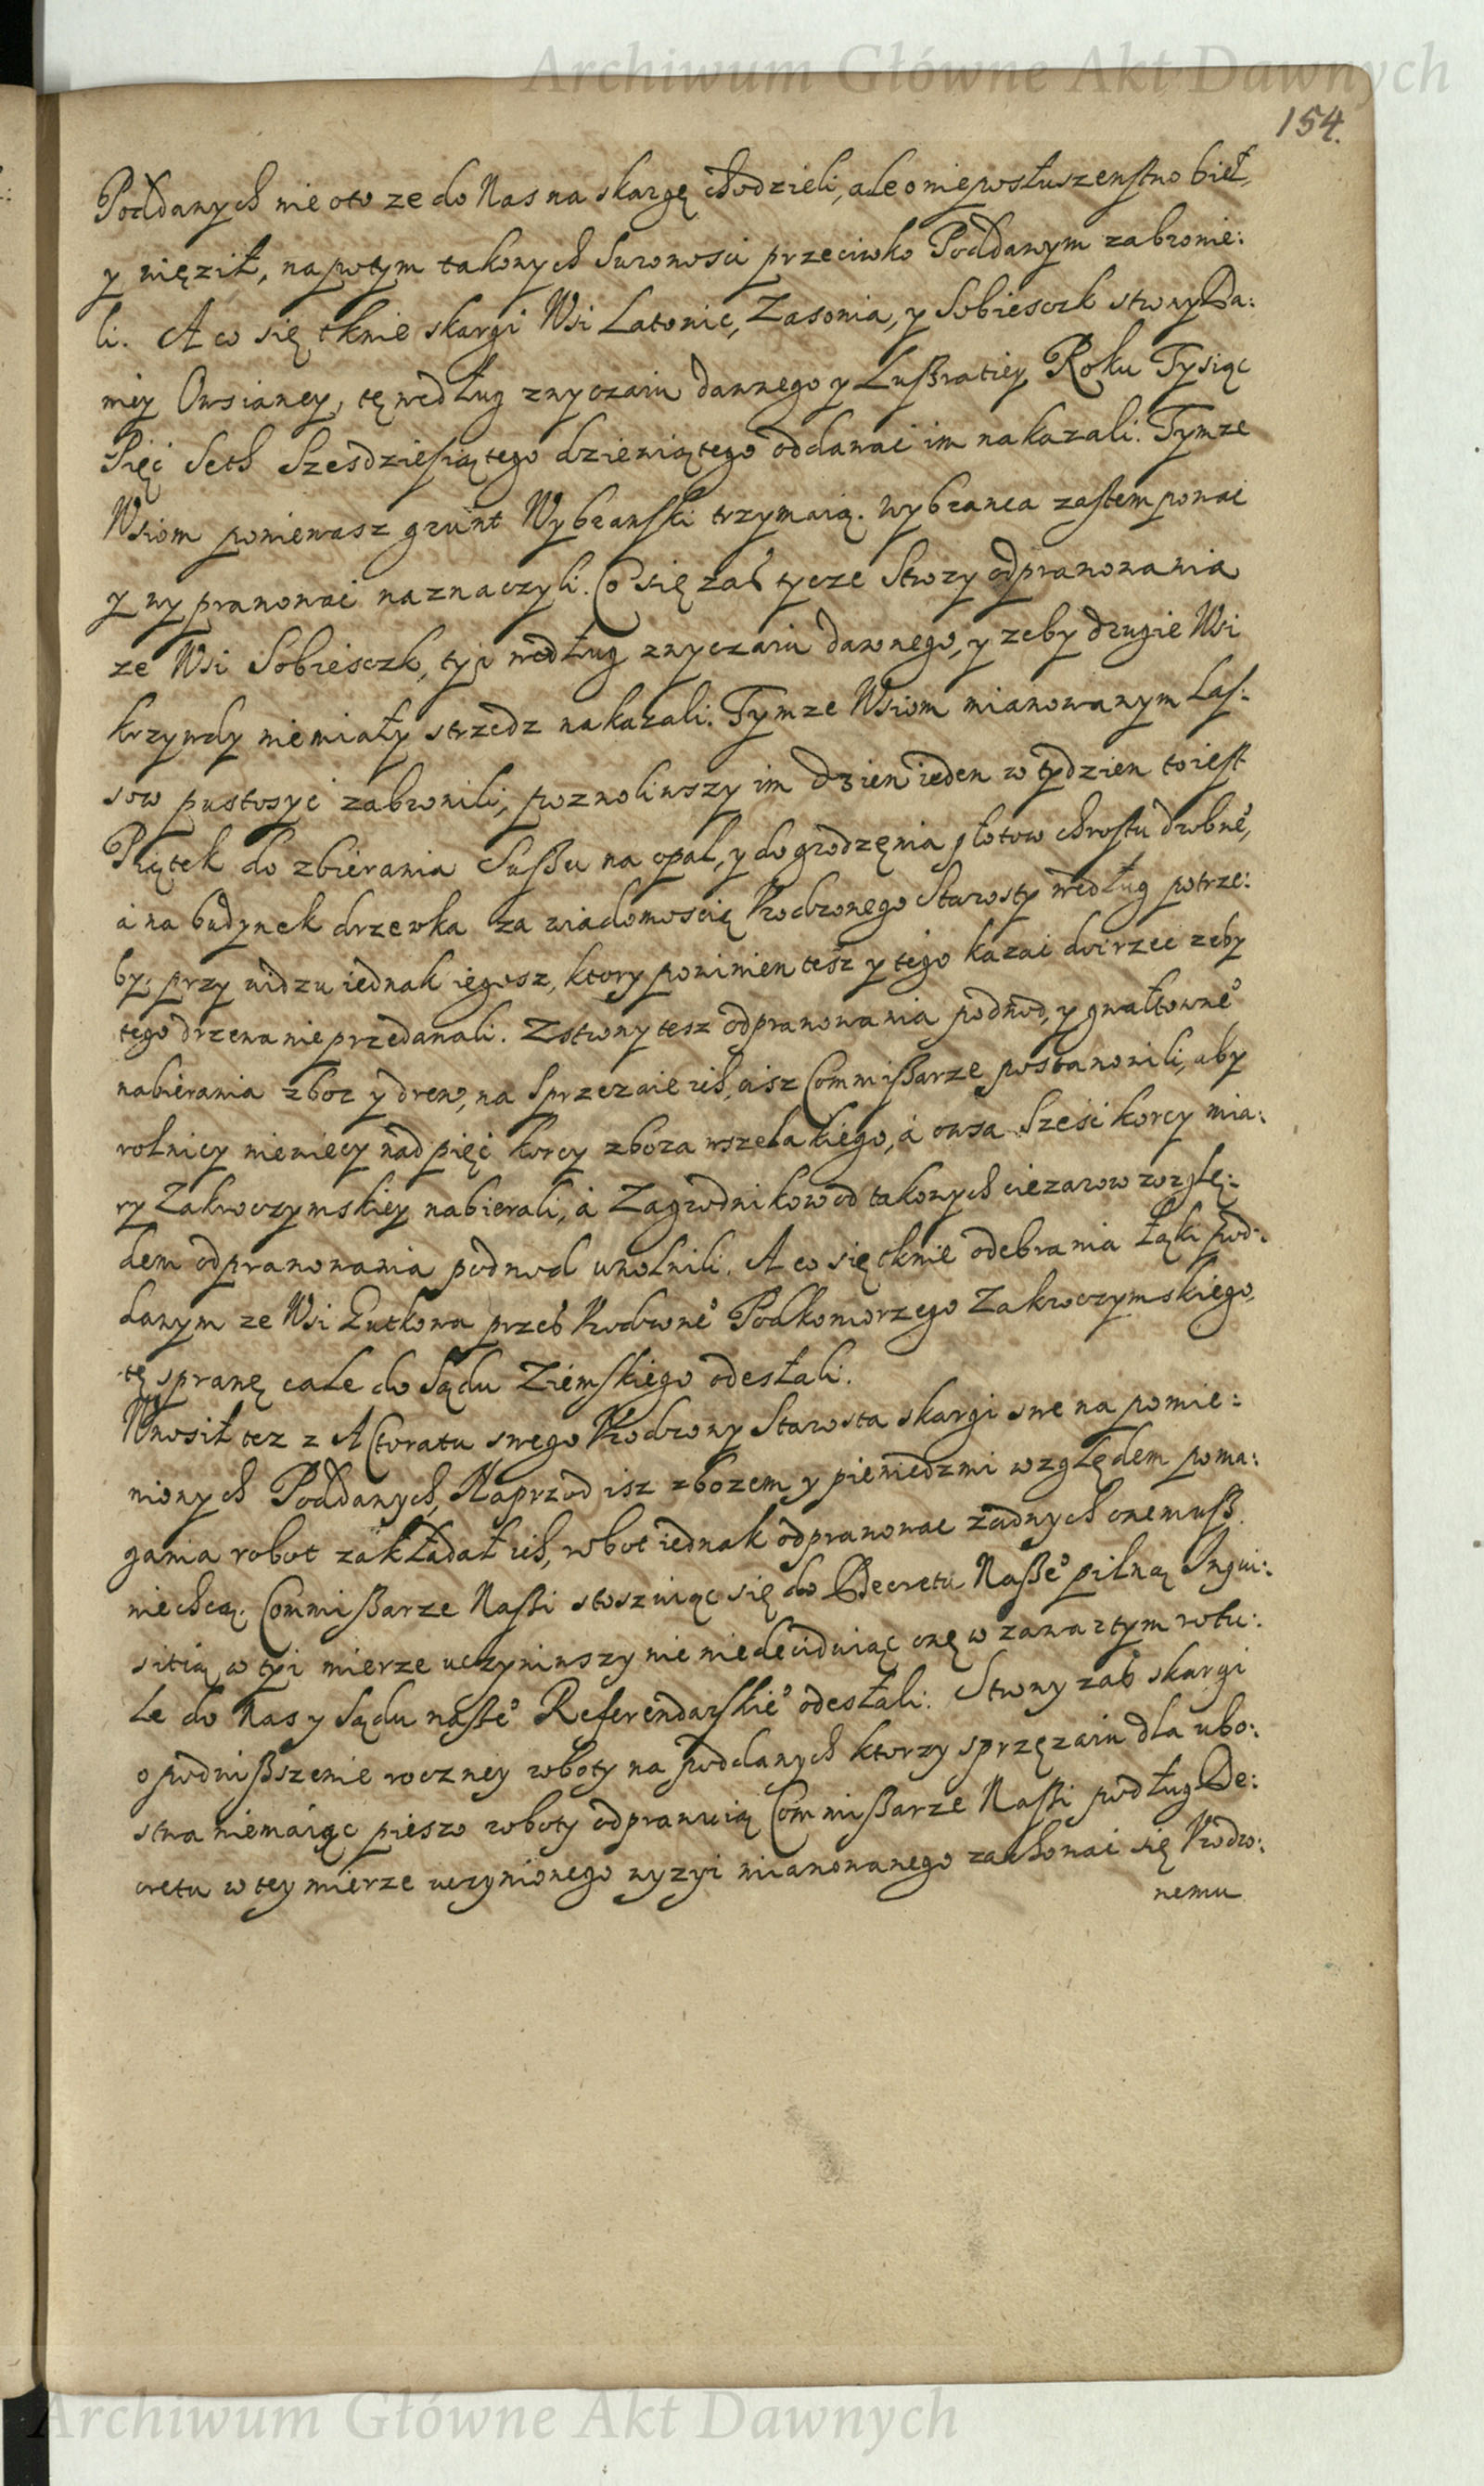 Archiwum Główne Akt Dawnych
154.
Poddanych nie oto ze do Nas na skargę chodzieli, ale o nieposłuszenstwo bieł,
y więził, napotym takowych surowosci przeciwko Poddanym zabronie:
li. A co się tknie skargi Wsi Latonic, Zasonia, y Sobiesczk strony Da:
niey Owsianey, tę według zwyczaiu dawnego y Lustratiey Roku Tysiąc
Pięc Seth Szesdziesiątego dziewiątego oddawac im nakazali. Tymze
Wsiom poniewasz grunt Wybranski trzymaią. wybranca zastempowac
y wyprawowac naznaczyli. Co się zas tycze Strozy odprawowania
ze Wsi Sobiesczk, tyi według zwyczaiu dawnego, y zeby drugie Wsi
krzywdy niemiały strzedz nakazali. Tymze Wsiom mianowanym Las:
sow pustosyc zabronili, pozwoliwszy im dzien ieden w tydzien to iest
Piątek do zbierania Suszu na opal, y do grodzęnia płotow chrostu drobne͡o,
á na budynek drzewka za wiadomoscią Urodzonego Starosty według potrze:
by, przy widzu iednak iegosz, ktory powinien tesz y tego kazac doirzec zeby
tego drzewa nie przedawali. Z strony tesz odprawowania podwod, y gwałtowne͡o
nabierania zboz y drew, na sprzezaie ich, aisz Commissarze postanowili, aby
rolnicy niewiecy nad pięc korcy zboza wszelakiego, á owsa szesc korcy mia:
ry Zakroczymskiey nabierali, á Zagrodnikow od takowych ciezarow wzglę:
dem odprawowania podwod uwolnili. A co się tknie odebrania Łąki pod:
danym ze Wsi Lutkowa przes Urodzone͡o Podkomorzego Zakroczymskiego,
tę sprawę cale do Sądu Ziemskiego odesłali.
Wnosił tez z Actoratu swego Urodzony Starosta skargi swe na pomie:
nionych Poddanych, Naprzod isz zbozem y pieniedzmi względem poma:
gania robot zakładał ich, robot iednak odprawowac zadnych onemusz
niechcą. Commissarze Nassi stoszuiąc się do Decretu Nasze͡o pilną Inqui:
sitią w tyi mierze uczyniwszy nie niedeciduiąc onę w zawartym rotu:
le do Nas y Sądu nasze͡o Referendarskie͡o odesłali. Strony zas skargi
o podwisszenie roczney roboty na poddanych ktorzy sprzęzaiu dla ubo:
stwa niemaiąc pieszo roboty odprawuią Commissarze Nassi podług De:
cretu w tey mierze uczynionego wyzyi mianowanego zachowac się Urodzo:
nemu
Archiwum Główne Akt Dawnych